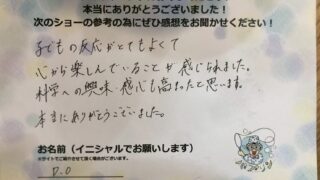 本当にありがとうございました！
次のショーの参考の為にぜひ感想をお聞かせください！
子どもの反応がとてもよくて
心から楽しんでいることが感じられました。
科学への興味・感心も高まったと思います。
本当にありがとうございました。
お名前（イニシャルでお願いします）
※サイトでご紹介させて頂く場合がございます。
P.O